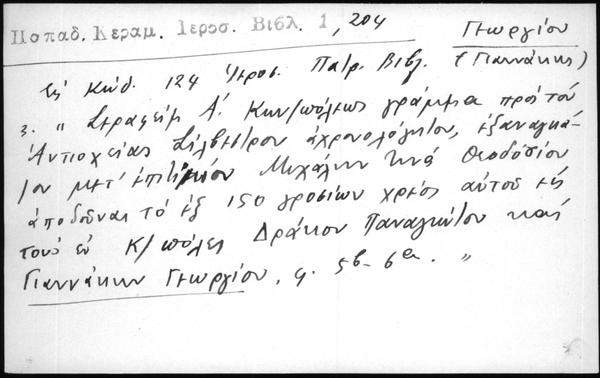 Παπαδ. Κεραμ. Ιεροσ. Βιβλ. 1, 204
Γεωργίου
(Γιαννάκης)
Ἐν κώδ. 124 Ἱεροσ. Πατρ. Βιβλ.
3. " Σεραφεὶμ Α΄. Κων/πόλεως γράμμα πρὸς τὸν
Ἀντιοχείας Σίλβεστρον ἀχρονολόγητον, ἐξαναγκά-
ζον μετ' ἐπιτιμίου Μιχάλην τινά Θεοδόσιον
ἀποδοῦναι τὸ ἐξ 150 γροσίων χρέος αὐτοῦ εἰς
τοὺς ἐν Κ/πόλει Δράκον Παναγιώτου καὶ
Γιαννάκην Γεωργίου. φ. 5b-6a. "